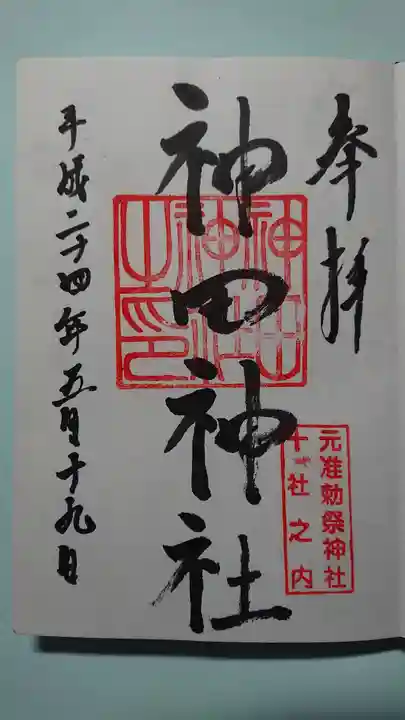 奉拝
元准勅祭神社
十社之内
神田神社
神田
神社
之印
平成二十四年五月十九日